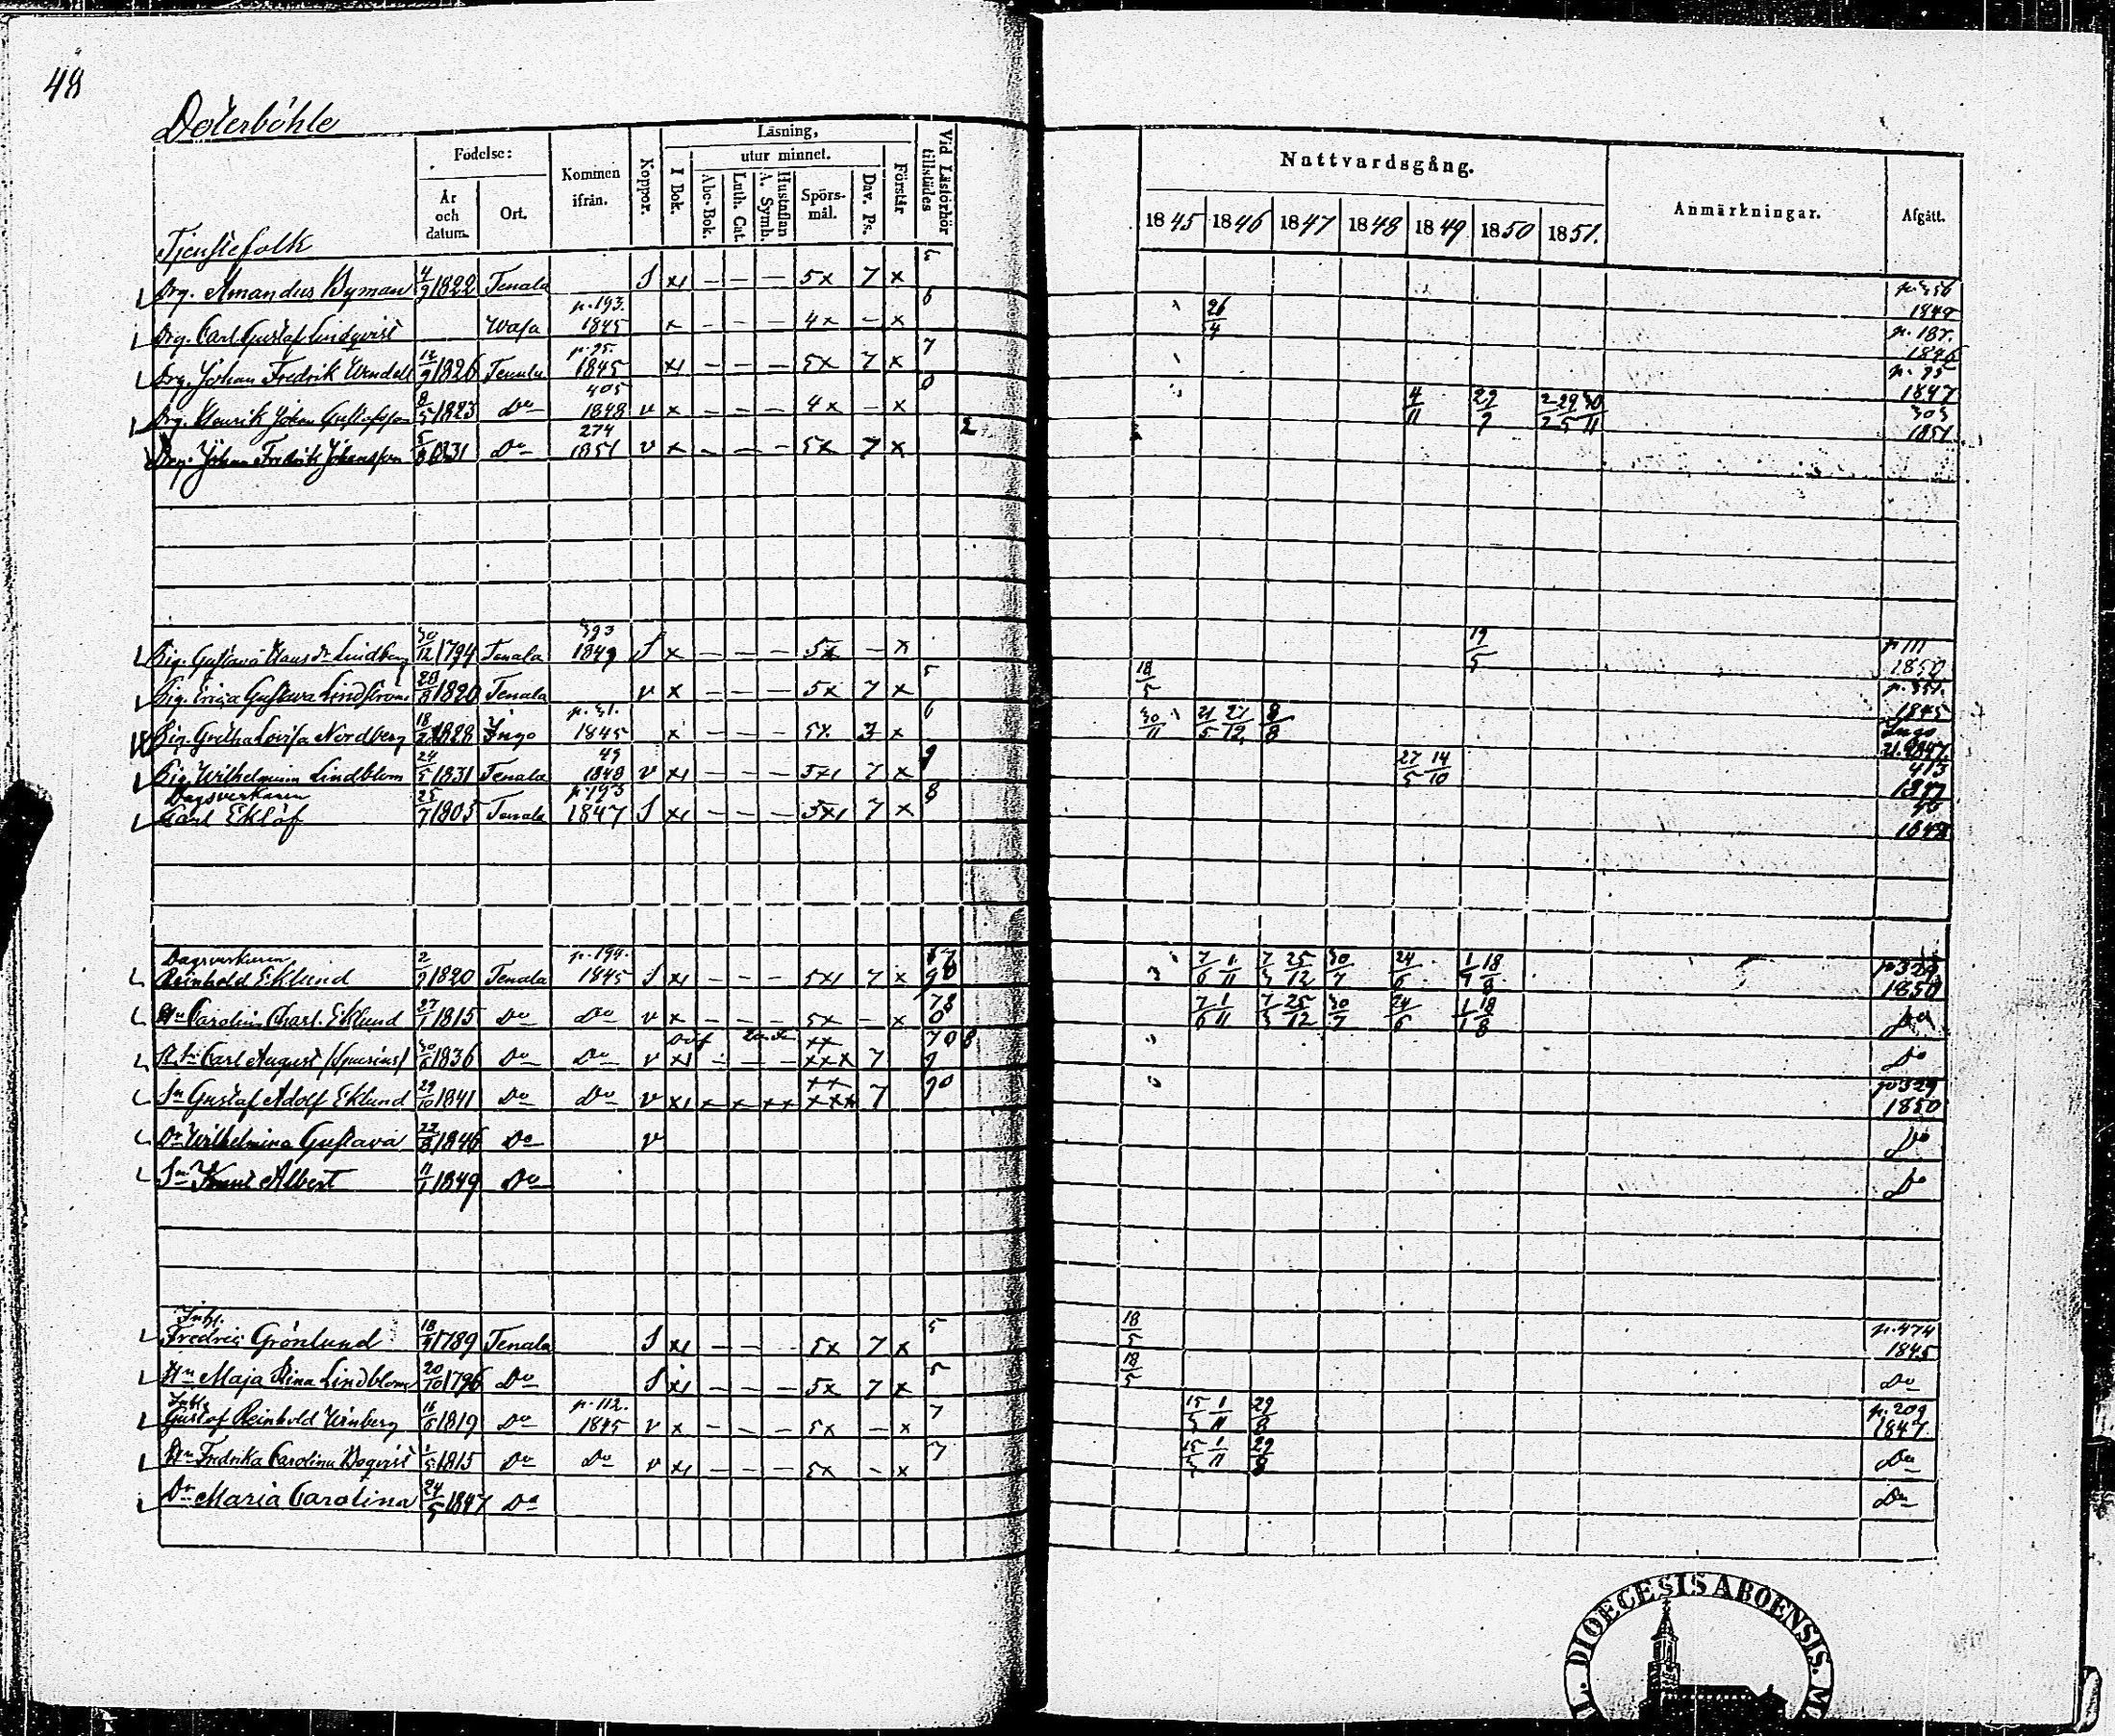 48
Österböhle
Födelse:
Kommen ifrån.
Koppor.
Läsning,
utur minnet.
I Bok.
Abc-Bok.
Luth. Cat.
A. Symb.
Hustaflan
Spörs-mål.
Dav. Ps.
Förstår
Vid Läsförhör tillstädes
År och datum.
Ort.
Nattvardsgång.
1845 1846 1847 1848 1849 1850 1851.
Anmärkningar.
Afgått.
Tjenstefolk
Drg. Amandus Byman 4/9 1822 Tenala S x1 – – – 5x 7 x
1849
Drg. Carl Gustaf Lindqvist Wasa p. 193. 1845 x – – – 4x – x 6 26/4 p. 187. 1846
Drg. Johan Fredrik 12/9 1826 Tenala p. 95. 1845 x1 – – – 5x 7 x 7 p. 95 1847
Drg. Henrik Johan Gustafsson 8/5 1823 Do 405 1848 v x – – – 4x – x 0 4/11 29/9 2/2 29/5 30/11 303 1851
Drg. Johan Fredrik Johansson 5/8 1831 Do 274 1851 v x – – – 5x 7 x 2
Pig. Gustava Lindberg 30/12 1794 Tenala 393 1849 S x – – – 5x – x 19/5 p 111 1850
Pig. Erica Gustava Lindström 28/8 1820 Tenala v x – – – 5x 7 x 5 18/5 p. 351. 1845
Pig. Gretha Lovisa Nordberg 18/2 1828 Ingo p. 31. 1845 x – – – 5x 3 x 6 30/11 21/5 27/12 8/8 Ingo 1847
Pig. Wilhelmina Lindblom 24/5 1831 Tenala 49 1848 v x1 – – – 5x1 7 x 9 27/5 14/10 413
Dagsverkaren
Carl Eklöf 25/7 1805 Tenala p 193 1847 S x1 – – – 5x1 7 x 8 1848
Dagsverkaren
Reinhold Eklund 2/9 1820 Tenala p. 194. 1845 S x1 – – – 5x1 7 x 7/6 1/11 7/3 25/12 30/7 24/6 1/1 18/8 p 329 1850
Hu Carolina Charl. Eklund 27/1 1815 Do Do v x – – – 5x – x 78 0 7/6 1/11 7/3 25/12 30/7 24/6 1/1 18/8 Do
Carl August (Spurius) 30/6 1836 Do Do v x1 – – – xxx 7 708 9 Do
Sn Gustaf Adolf Eklund 29/10 1841 Do Do v x1 x x xx xxx 7 90 p 329 1850
Dr Wilhelmina Gustava 22/8 1846 Do v Do
Sn Knut Albert 11/1 1849 Do Do
Inh.
Fredric Grönlund 18/4 1789 Tenala S x1 – – – 5x 7 x 5 18/5 p. 474 1845
Hu Maja Stina Lindblom 20/10 1796 Do S x1 – – – 5x 7 x 5 18/5 Do
Inh.
Gustaf Reinhold Winberg 16/6 1819 Do p. 112. 1845 v x – – – 5x – x 7 15/3 1/11 29/8 p. 209 1847
Hu Fredrika Carolina Boqvist 1/5 1815 Do Do v x1 – – – 5x – x 7 15/3 1/11 29/8 Do
Dr Maria Carolina 24/5 1847 Do Do
DIOECESIS ABOENSIS